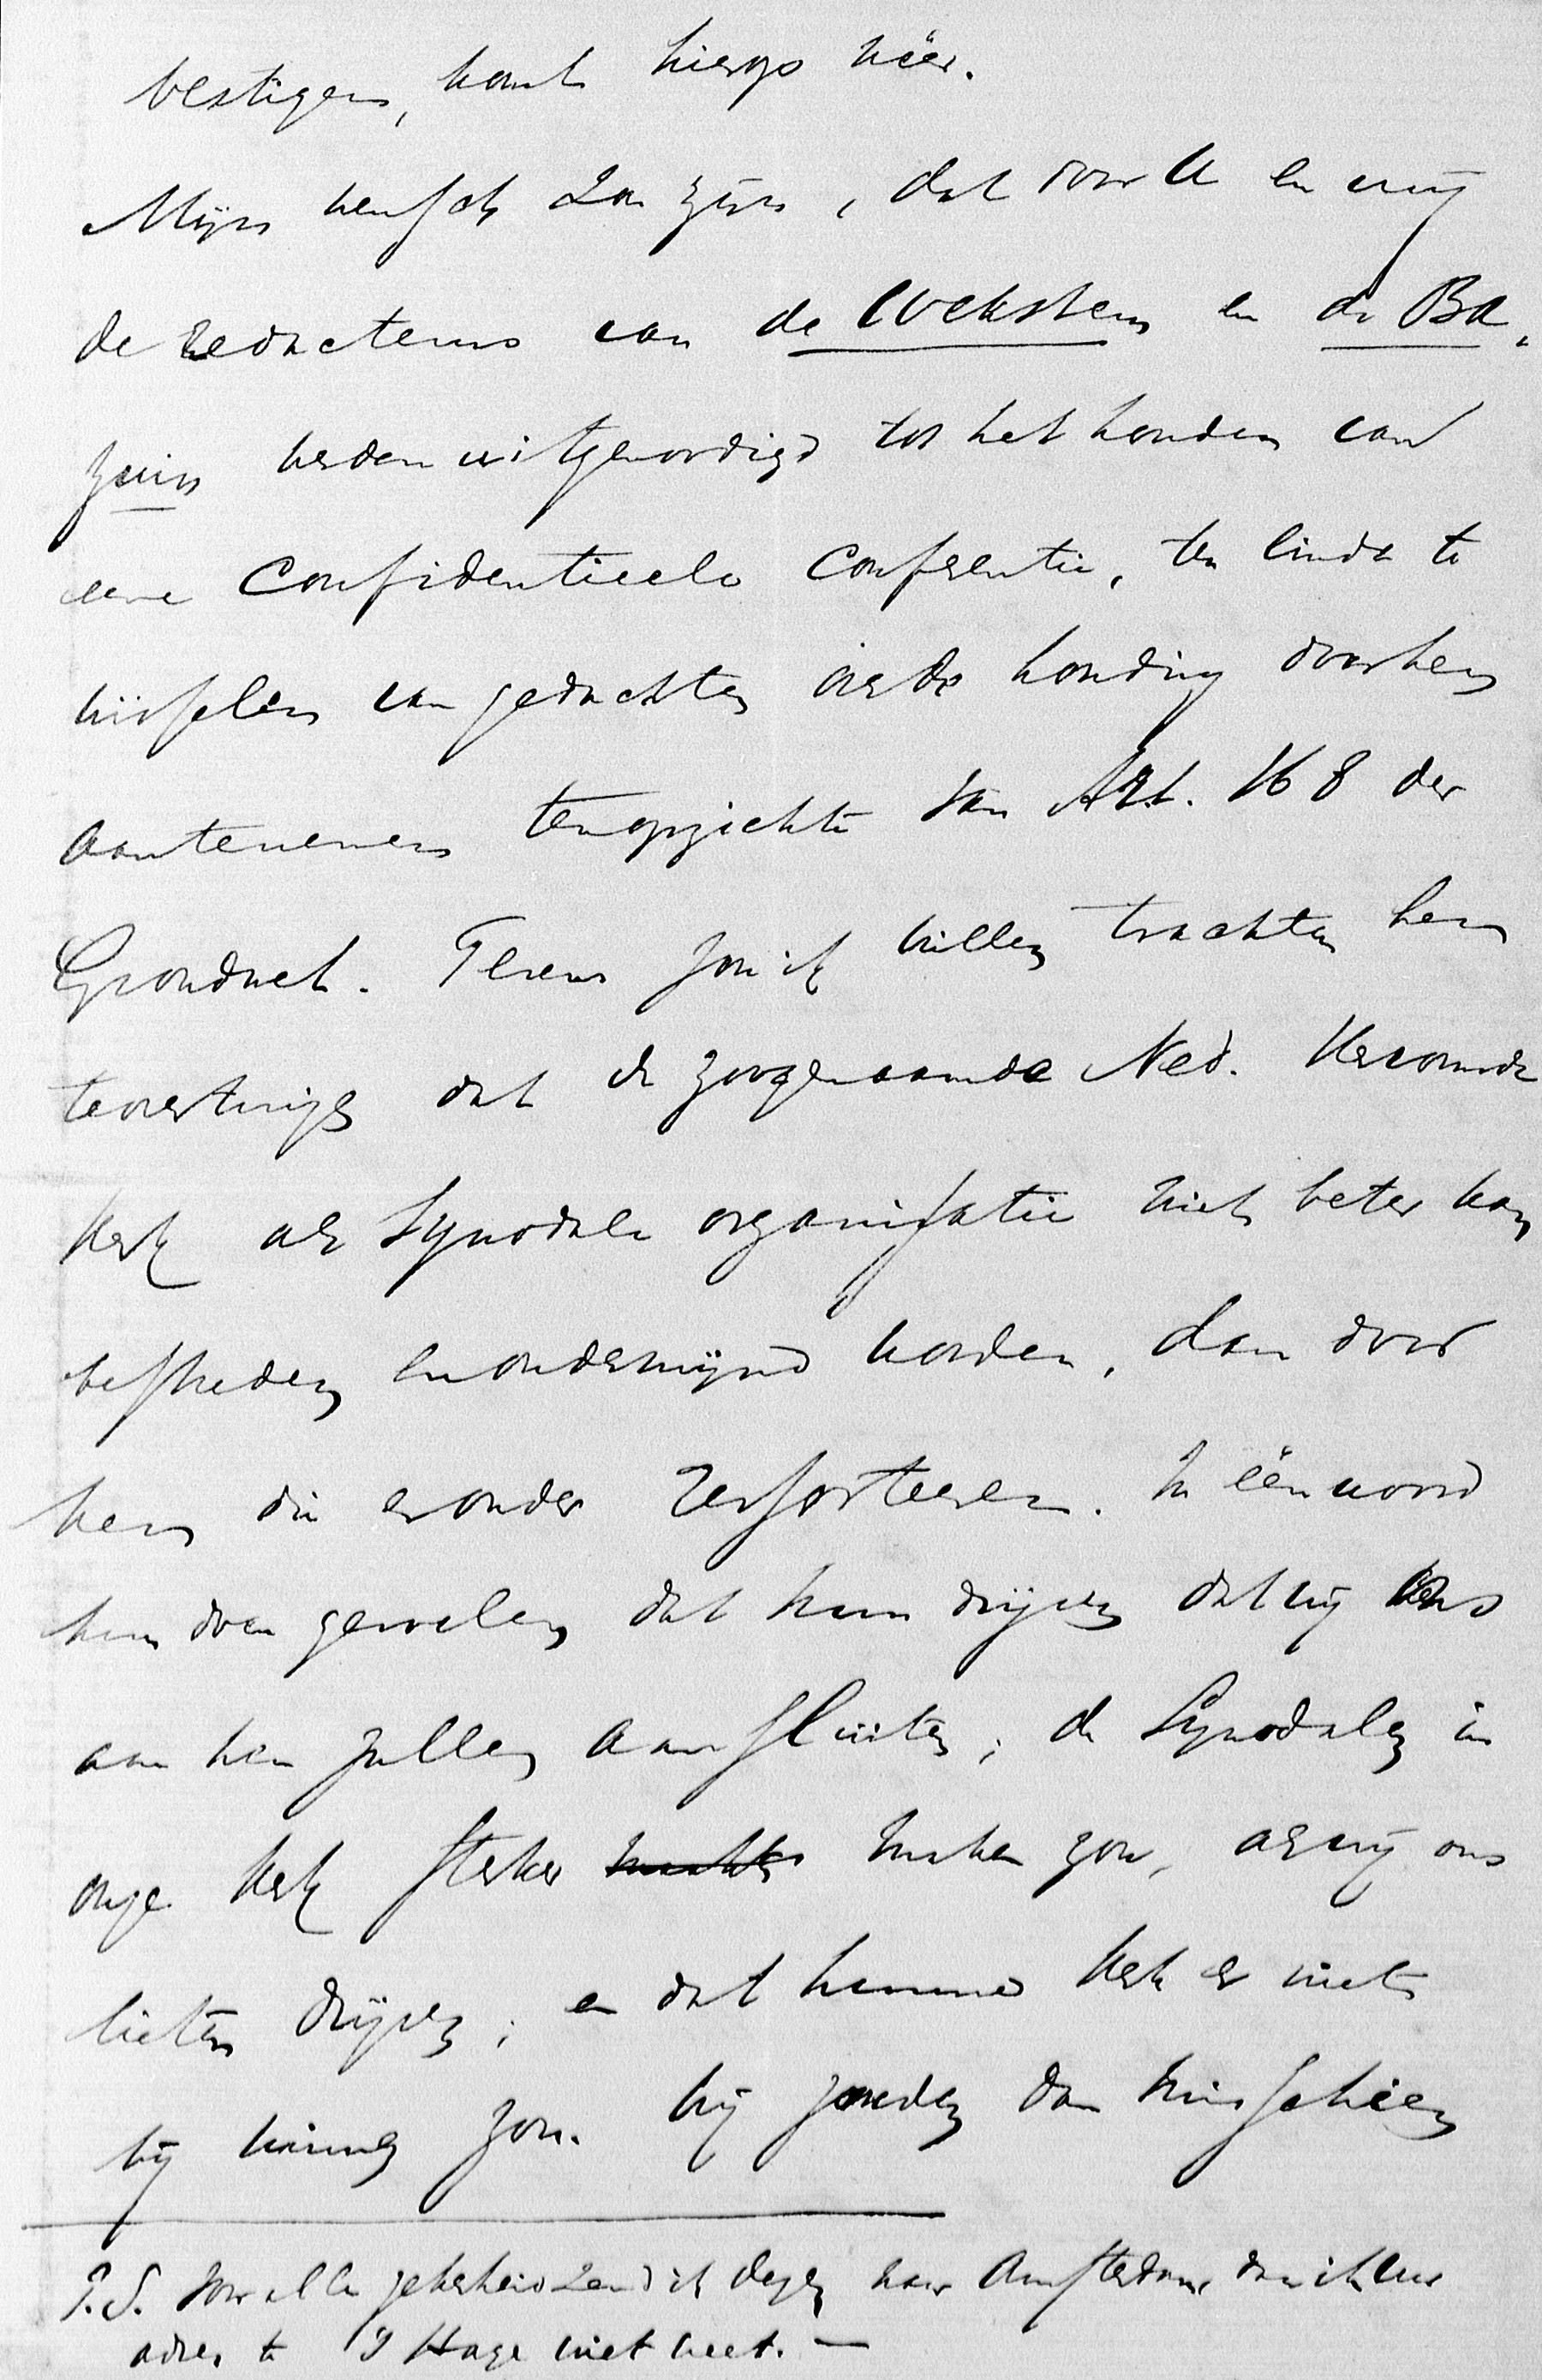 vestigen, komt hierop néer.
Mijn wensch zou zijn, dat door U en mij
de Redacteurs van de Wekstem en de Ba-
zuin werden uitgenoodigd tot het houden van
eene Confidentieele Conferentie, ten einde te
wisselen van gedachten over de houding door hen
aantenemen ten opzichte van Art. 168 der
Grondwet. Tevens zou ik willen trachten hen
te overtuigen dat de zoogenaamde Ned. Hervormde
Kerk als Synodale organisatie niet beter kan
bestreden en ondermijnd worden, dan door
hen die eronder ressorteeren. In één woord
hen doen gevoelen dat hun drijven dat wij ons
aan hen zullen aansluiten, de Synodalen in
onze Kerk sterker maken zou, als wij ons
lieten drijven; en dat hunne Kerk er niets
bij winnen zou. Wij zouden dan misschien
P.S. Voor alle zekerheid zend ik dezen naar Amsterdam daar ik Uw
adres te 's Hage niet weet. —